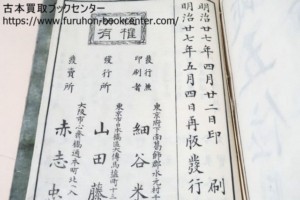 古本買取ブックセンター
https://www.furuhon-bookcenter.com/
明治廿七年四月廿二日印刷
明治廿七年五月四日再版發行
權有
發行兼
印刷者
東京府下南葛飾郡水元村
細谷米
發行所
東京市日本橋區大傳馬
山田藤
發賣所
大阪市心齋橋通本町北ヘ入
赤志忠